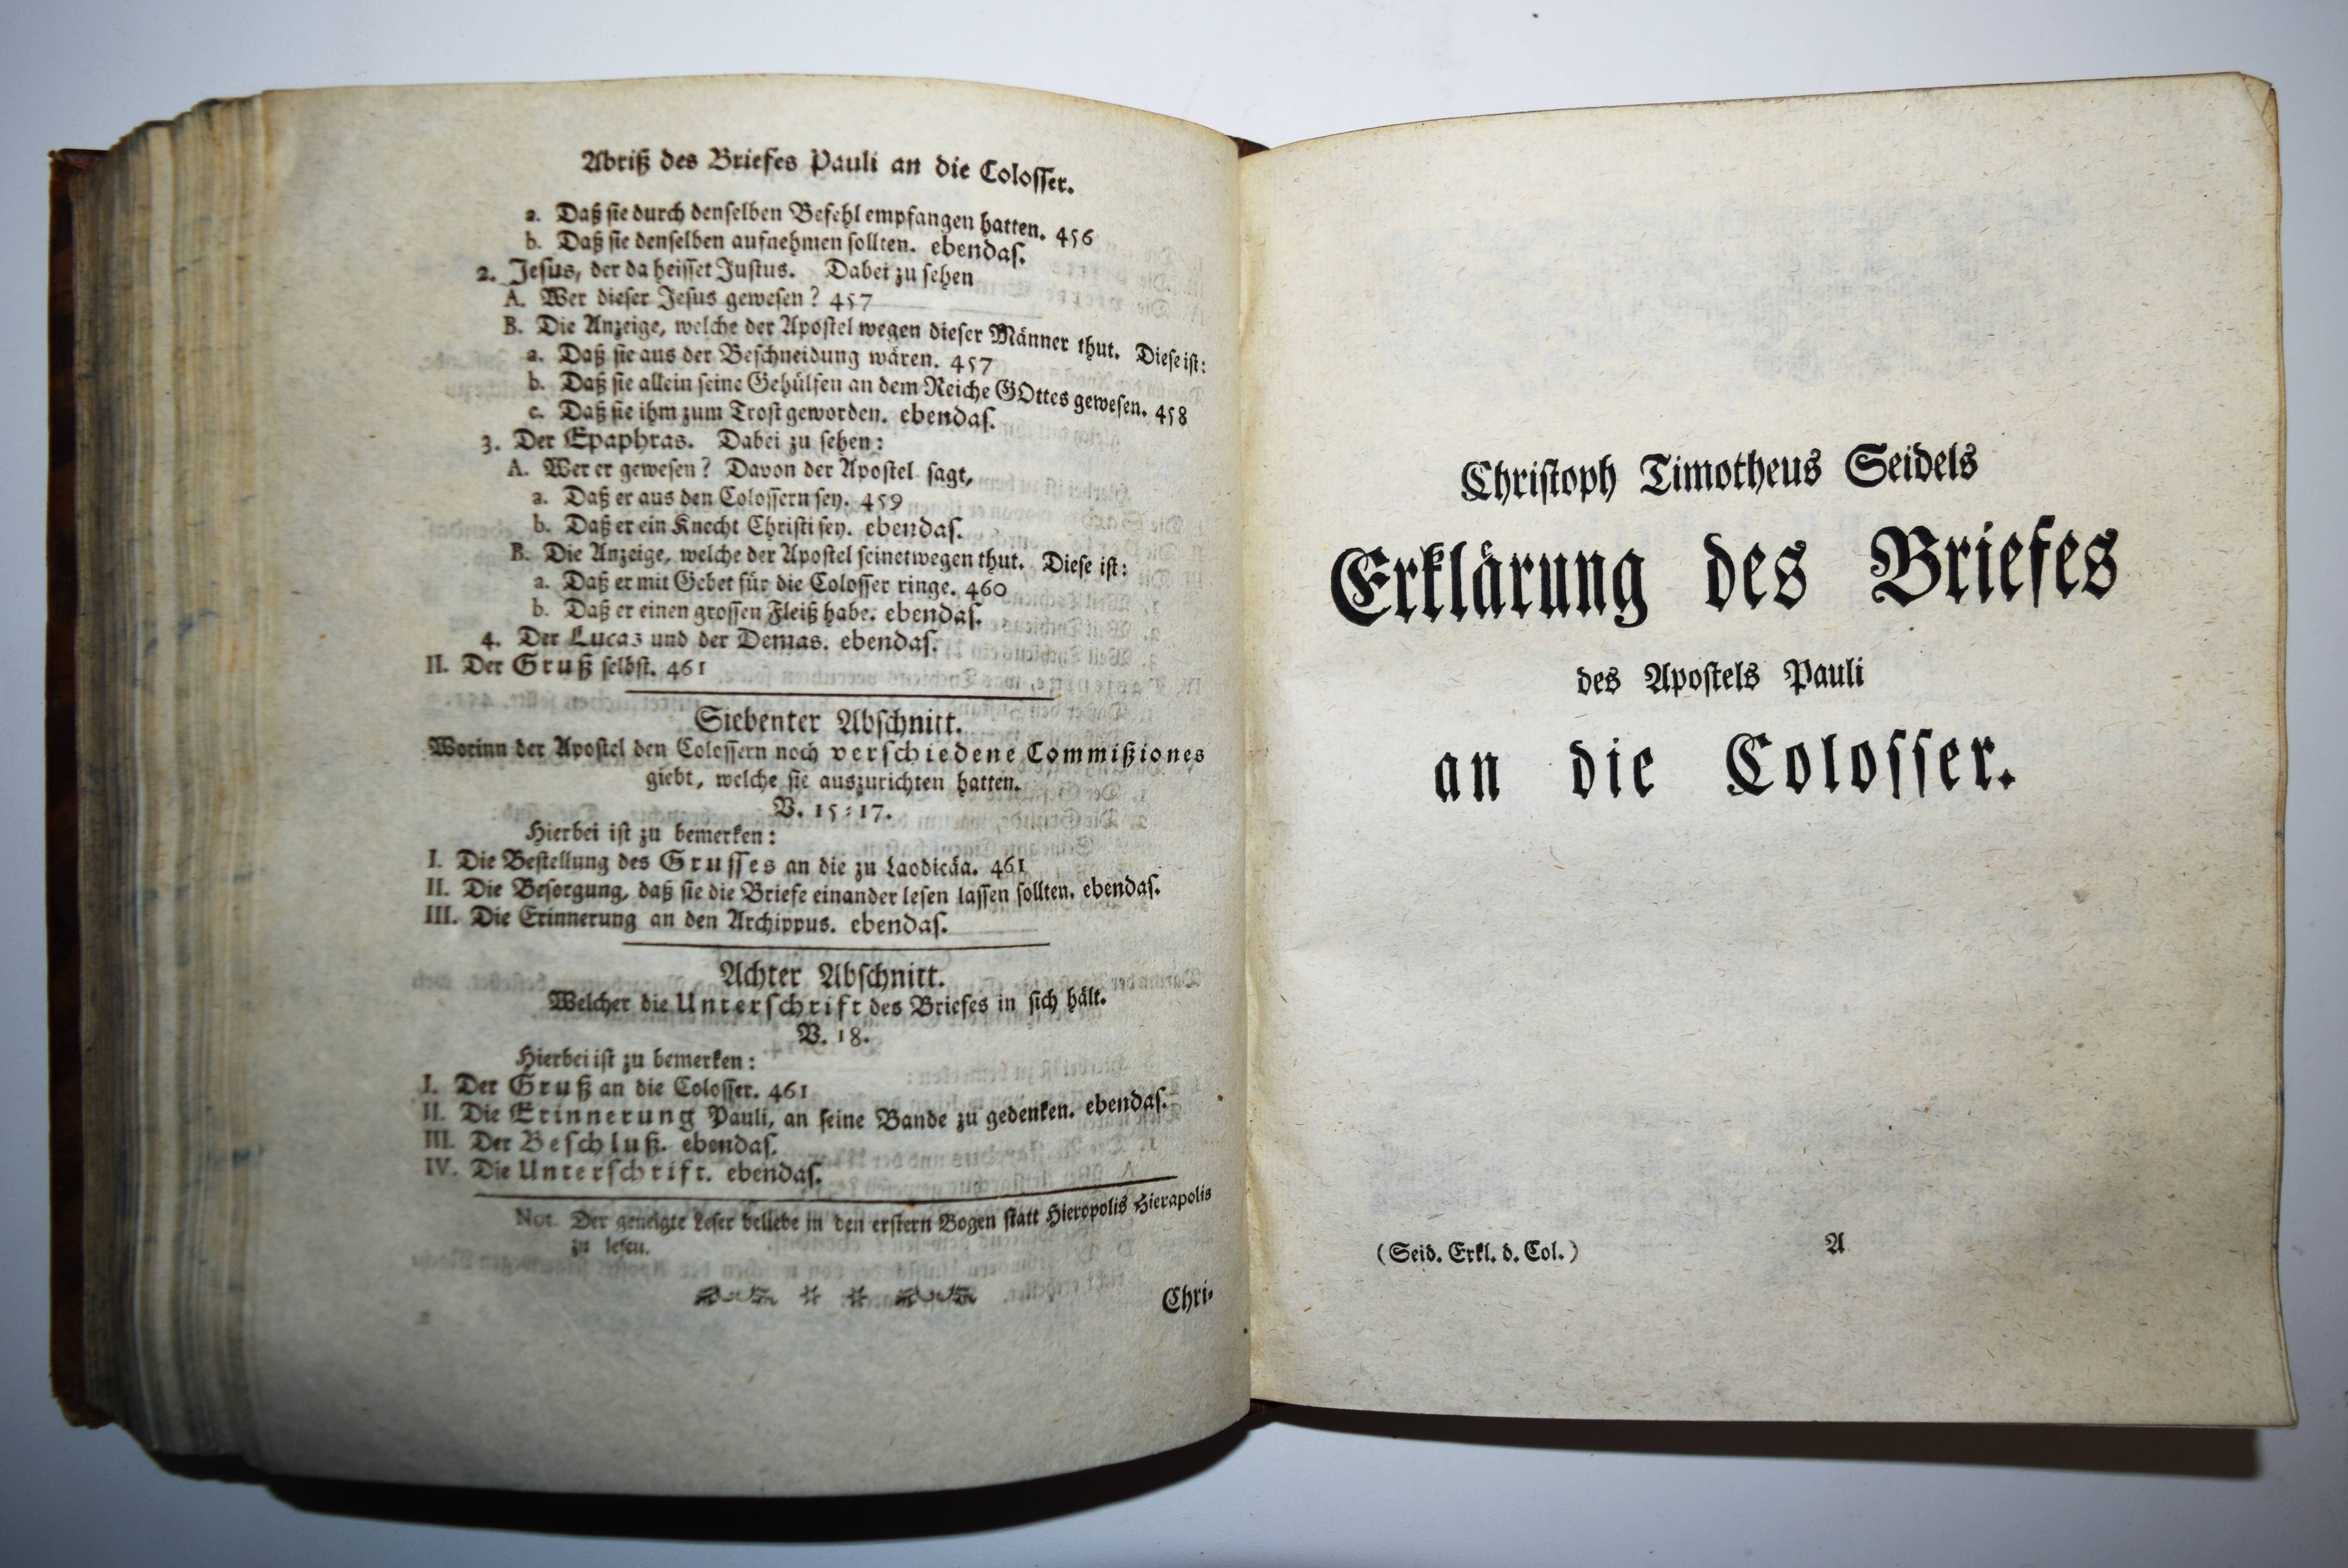 Abriß des Briefes Pauli an die Colosser.
a. Daß sie durch denselben Befehl empfangen hatten. 456
b. Daß sie denselben aufnehmen sollten. ebendas.
2. Jesus, der da heisset Justus. Dabei zu sehen
A. Wer dieser Jesus gewesen? 457
B. Die Anzeige, welche der Apostel wegen dieser Männer thut. Diese ist:
a. Daß sie aus der Beschneidung wären. 457
b. Daß sie allein seine Gehülfen an dem Reiche GOttes gewesen. 458
c. Daß sie ihm zum Trost geworden. ebendas.
3. Der Epaphras. Dabei zu sehen:
A. Wer er gewesen? Davon der Apostel sagt,
a. Daß er aus den Colossern sey. 459
b. Daß er ein Knecht Christi sey. ebendas.
B. Die Anzeige, welche der Apostel seinetwegen thut. Diese ist:
a. Daß er mit Gebet für die Colosser ringe. 460
b. Daß er einen grossen Fleiß habe. ebendas.
4. Der Lucas und der Demas. ebendas.
II. Der Gruß selbst. 461
Siebenter Abschnitt.
Worinn der Apostel den Colossern noch verschiedene Commißiones
giebt, welche sie auszurichten hatten.
V. 15:17.
Hierbei ist zu bemerken:
I. Die Bestellung des Grusses an die zu Laodicäa. 461
II. Die Besorgung, daß sie die Briefe einander lesen lassen sollten. ebendas.
III. Die Erinnerung an den Archippus. ebendas.
Achter Abschnitt.
Welcher die Unterschrift des Briefes in sich hält.
V. 18.
Hierbei ist zu bemerken:
I. Der Gruß an die Colosser. 461
II. Die Erinnerung Pauli, an seine Bande zu gedenken. ebendas.
III. Der Beschluß. ebendas.
IV. Die Unterschrift. ebendas.
Not. Der geneigte Leser beliebe in den erstern Bogen statt Hieropolis Hierapolis
zu lesen.
Chri-
Christoph Timotheus Seidels
Erklärung des Briefes
des Apostels Pauli
an die Colosser.
(Seid. Erkl. d. Col.) A